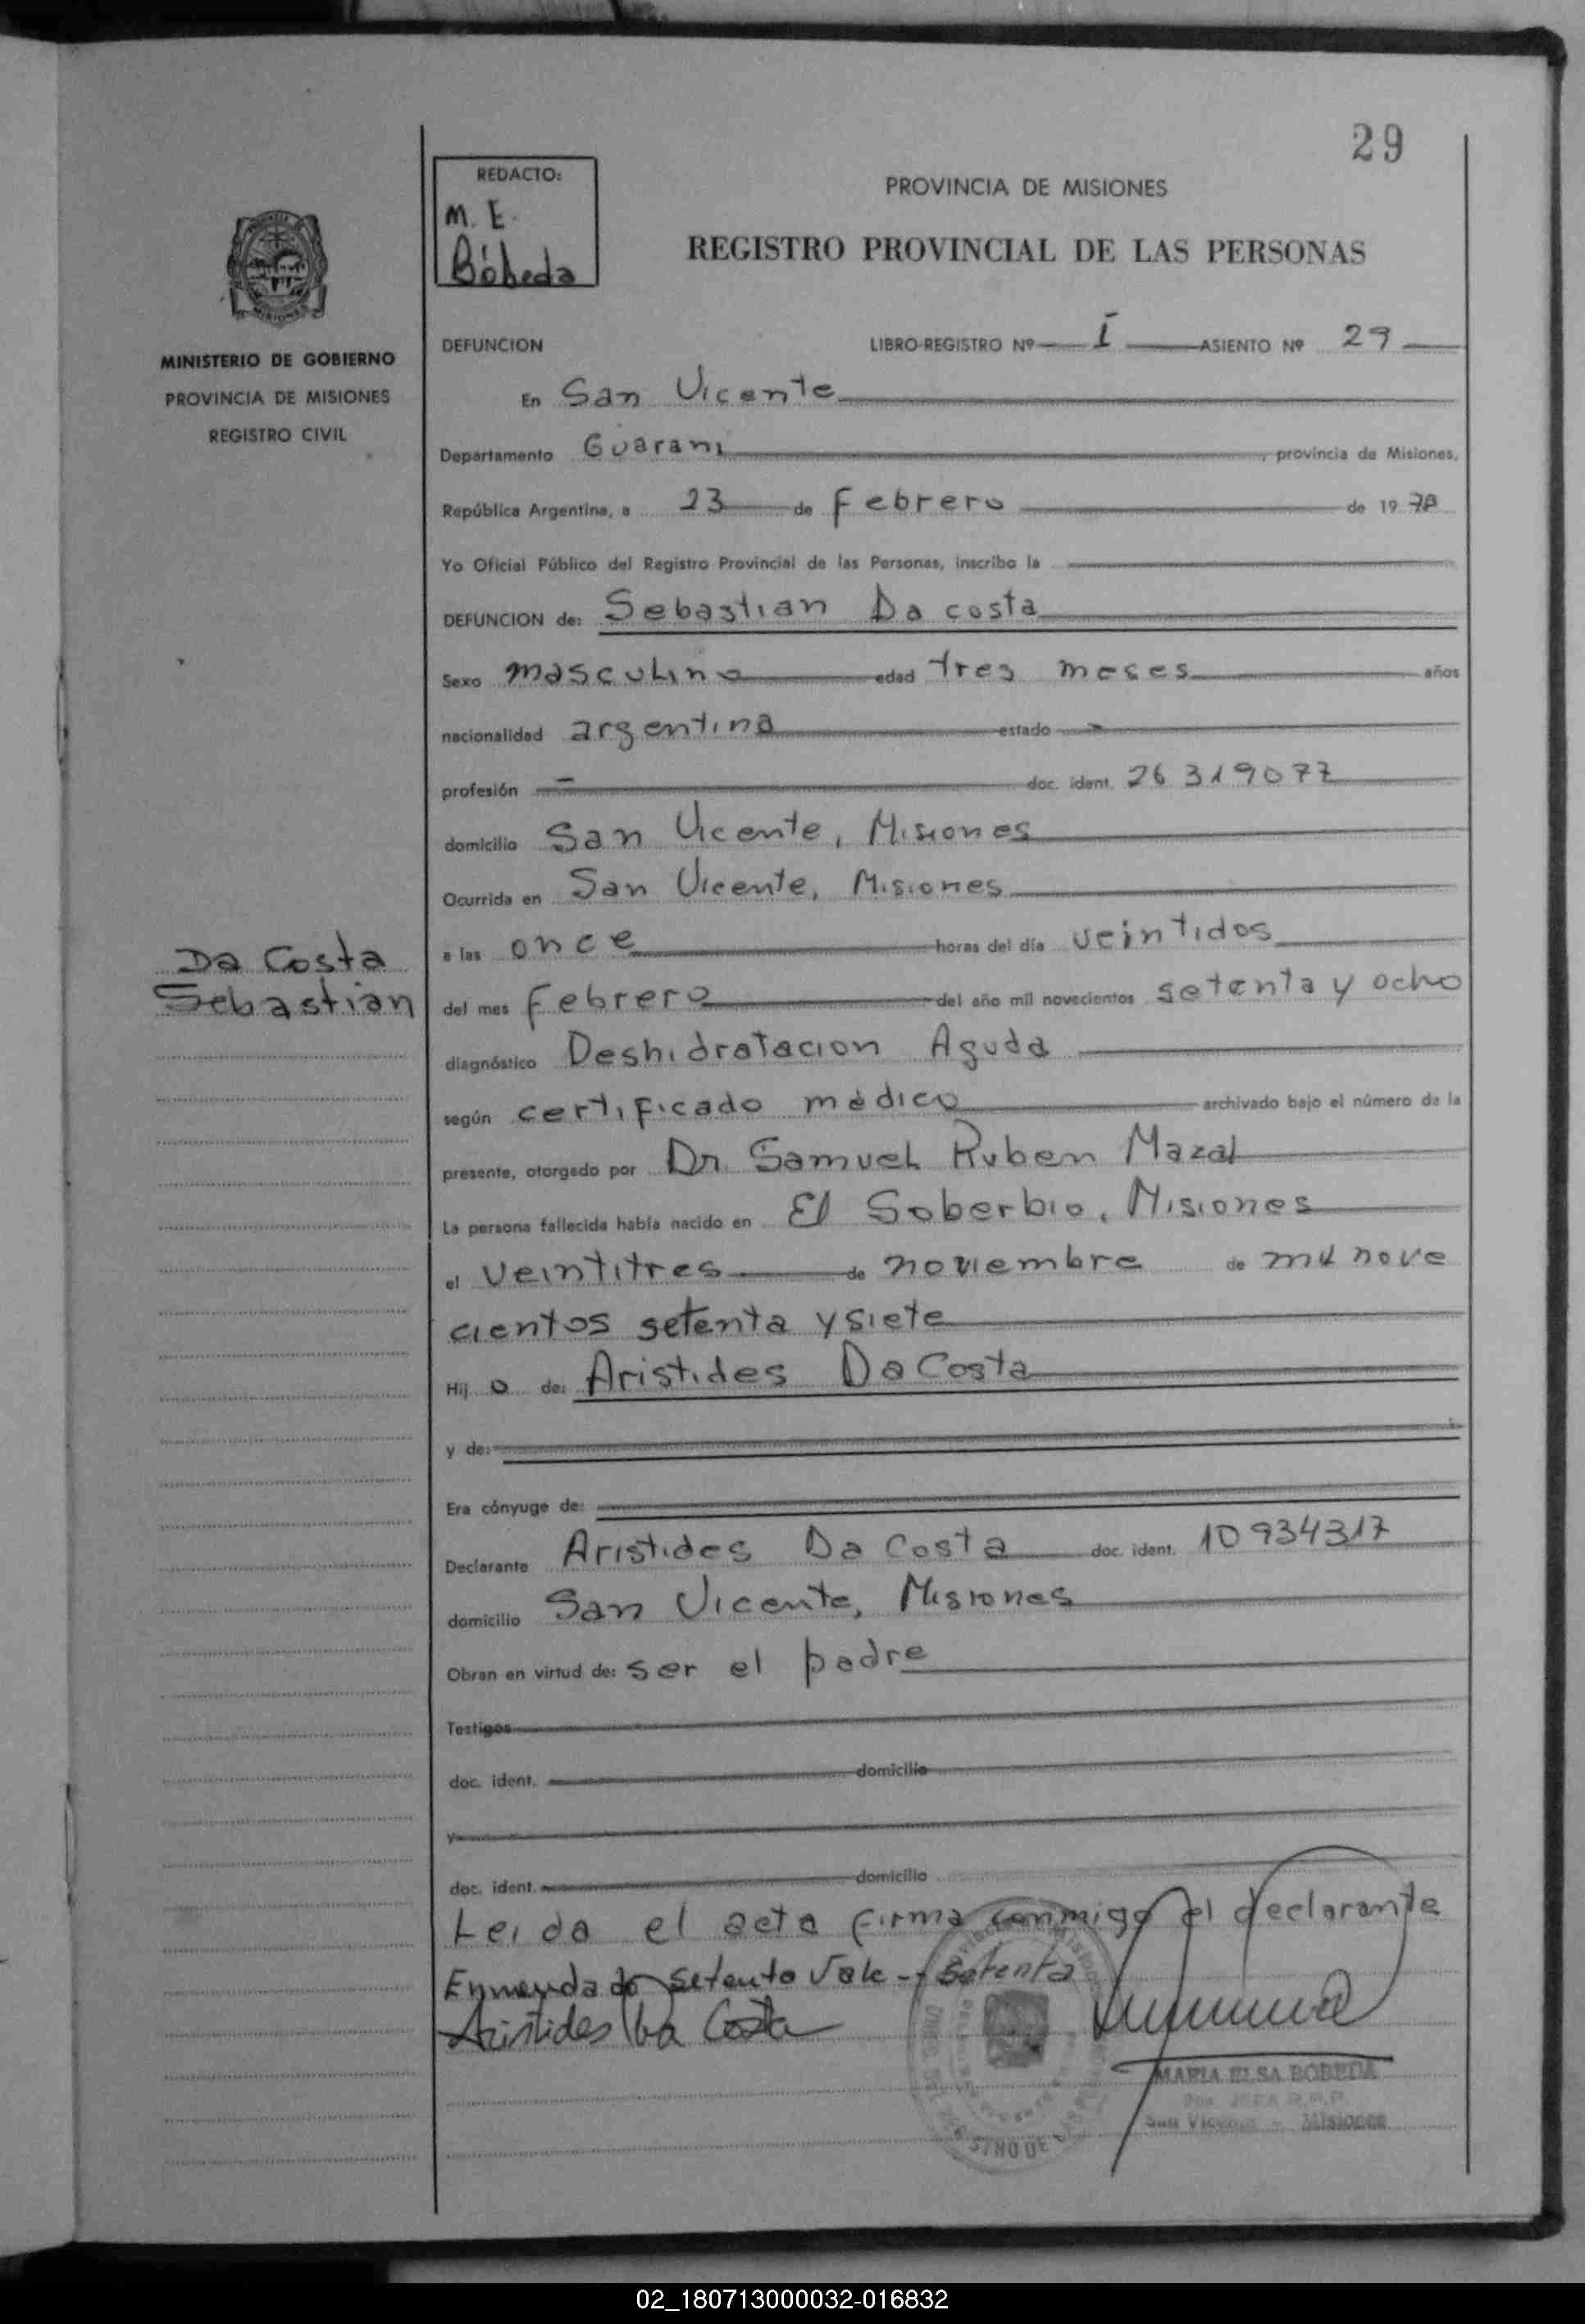 29
REDACTO:
M. E.
Bóbeda
PROVINCIA DE MISIONES
REGISTRO PROVINCIAL DE LAS PERSONAS
MINISTERIO DE GOBIERNO
PROVINCIA DE MISIONES
REGISTRO CIVIL
DEFUNCION LIBRO-REGISTRO Nº I ASIENTO Nº 29
En San Vicente
Departamento Guarani, provincia de Misiones,
República Argentina, a 23 de Febrero de 1978
Yo Oficial Público del Registro Provincial de las Personas, inscribo la
DEFUNCION de: Sebastian Da costa
Sexo masculino edad tres meses años
nacionalidad argentina estado -
profesión - doc. ident. 26 319077
domicilio San Vicente, Misiones
Ocurrida en San Vicente, Misiones
a las once horas del día veintidos
Da Costa
Sebastian
del mes Febrero del año mil novecientos setenta y ocho
diagnóstico Deshidratacion Aguda
según certificado médico archivado bajo el número de la
presente, otorgado por Dr. Samuel Ruben Mazal
La persona fallecida había nacido en El Soberbio, Misiones
el veintitres de noviembre de mil nove
cientos setenta y siete
Hij o de: Aristides Da Costa
y de:
Era cónyuge de:
Declarante Aristides Da Costa doc. ident. 10934317
domicilio San Vicente, Misiones
Obran en virtud de: ser el padre
Testigos
doc. ident. domicilio
y
doc. ident. domicilio
Leida el acta firma conmigo el declarante
Enmendado setenta Vale - setenta
Aristides Da Costa
MARIA ELSA BOBEDA
JEFA R.P.P.
San Vicente - Misiones
02_180713000032-016832